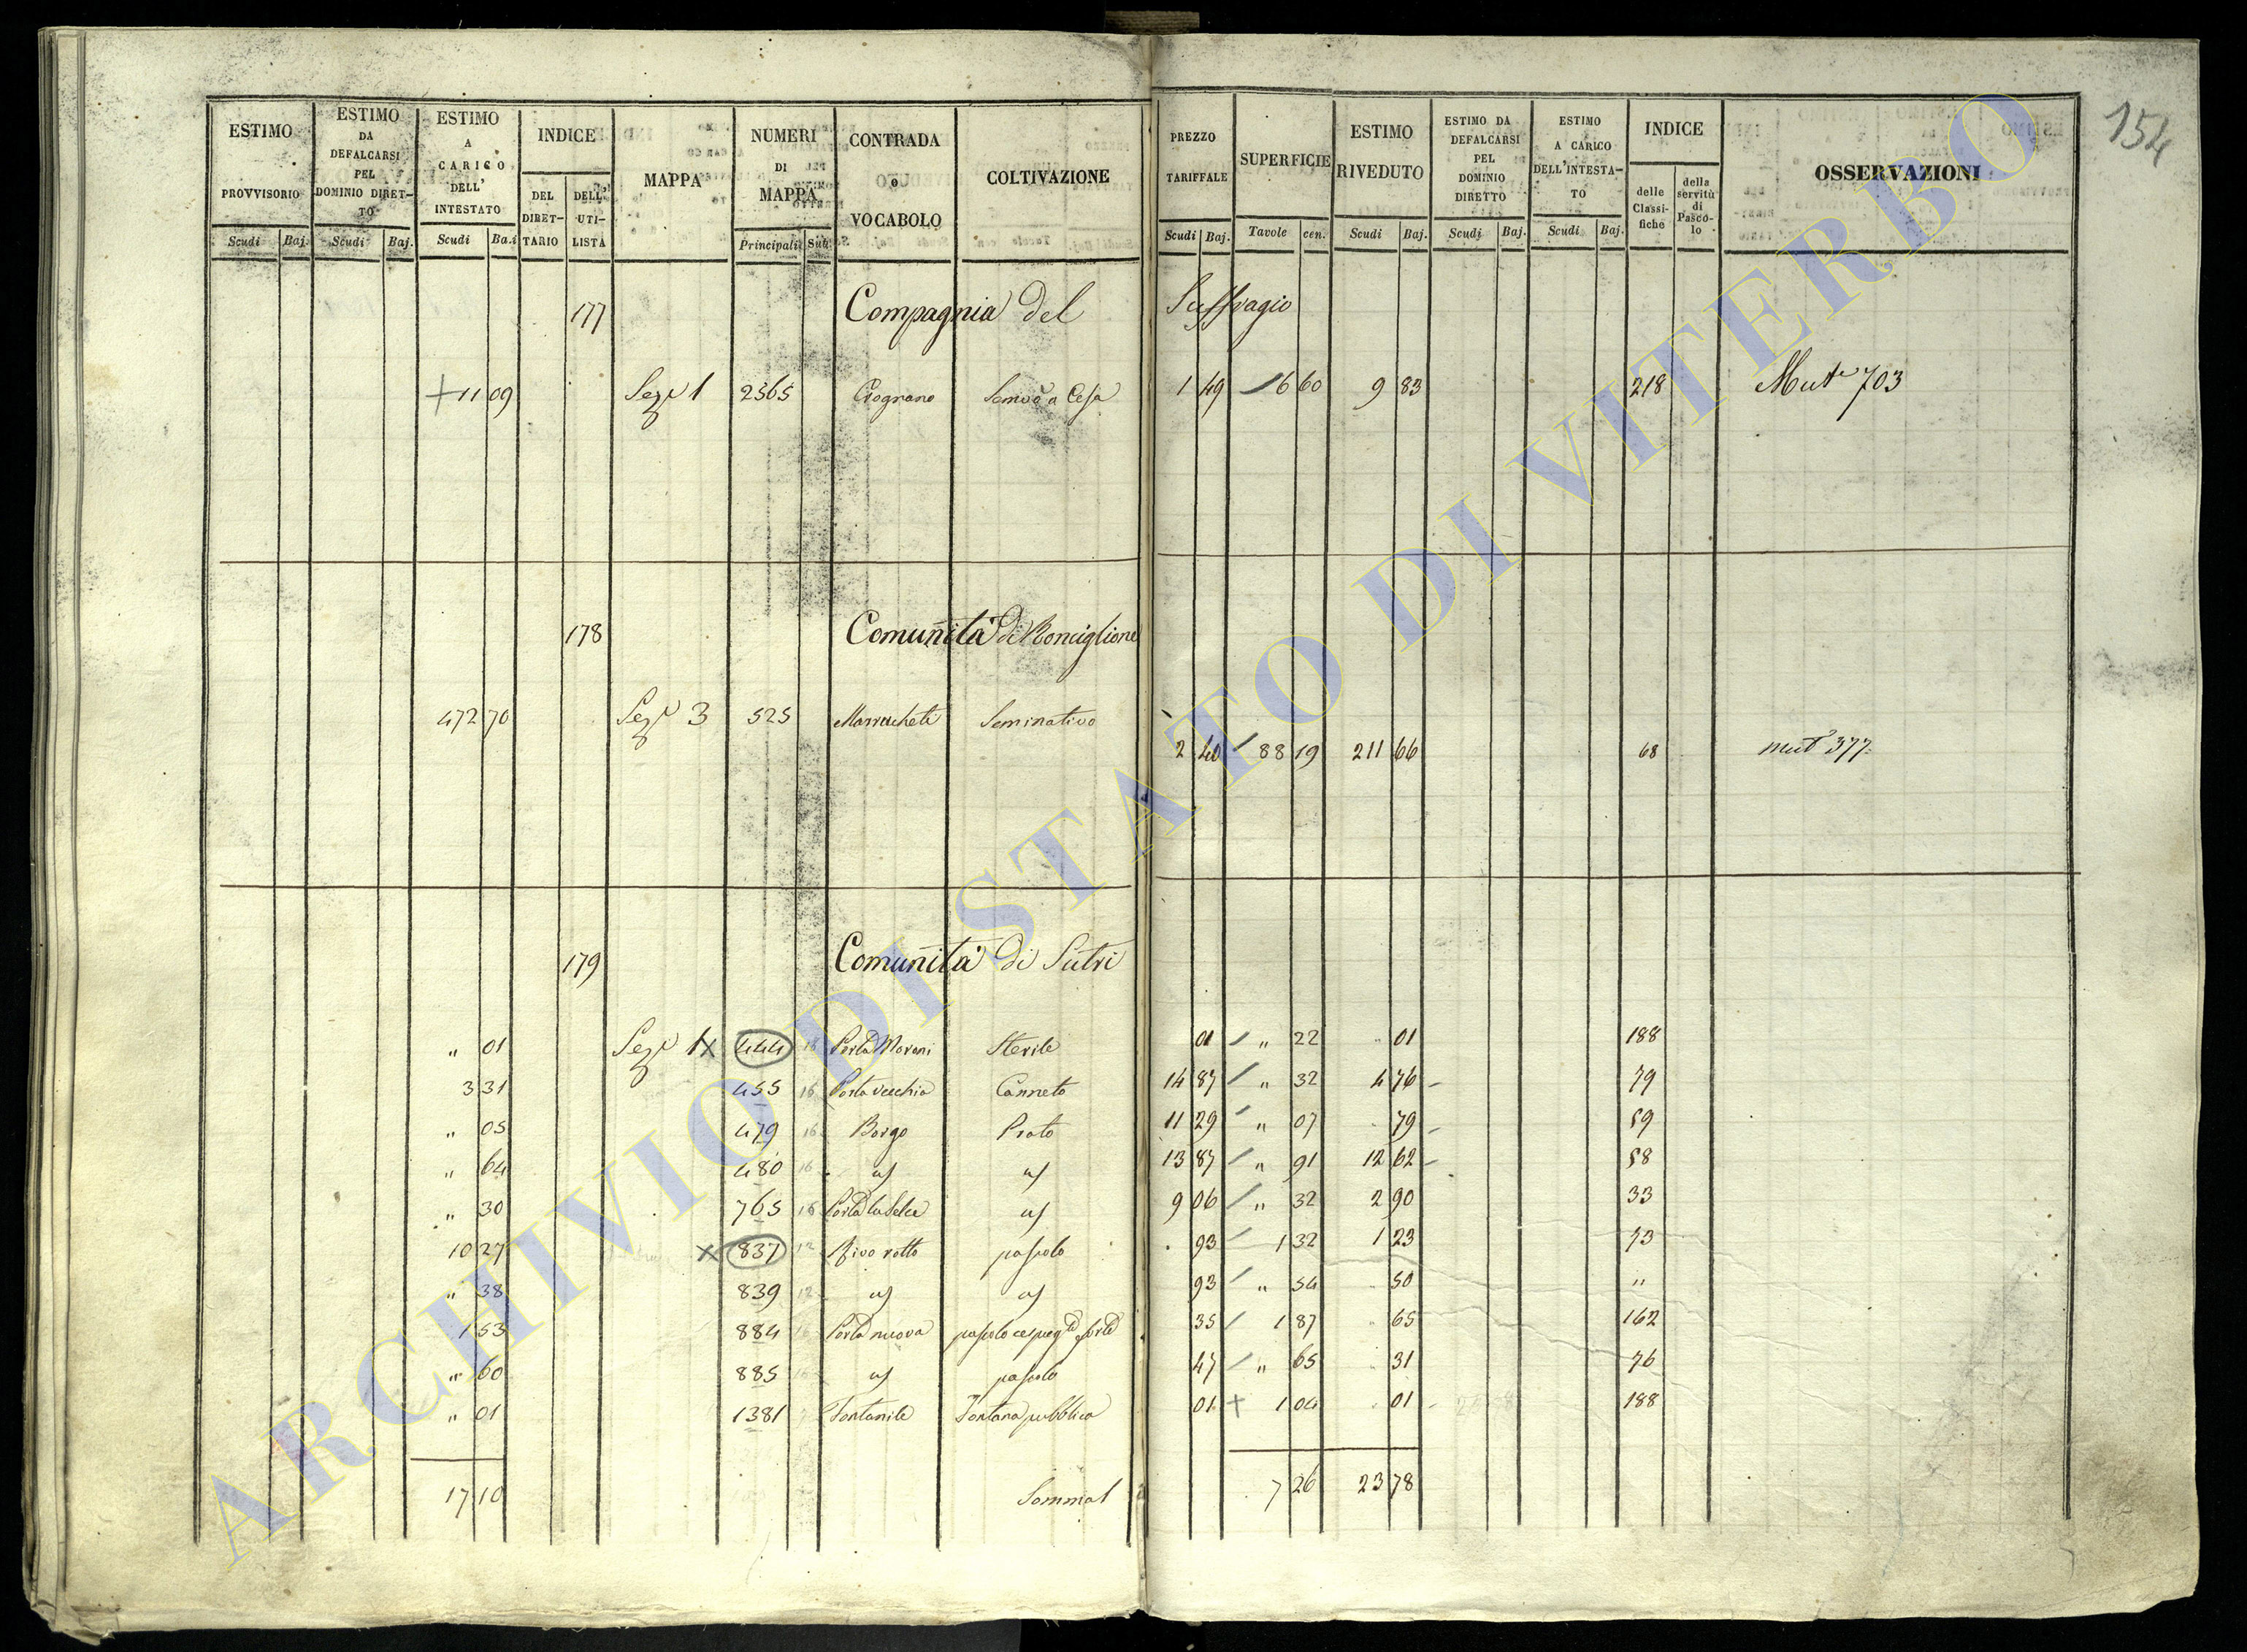 154
ESTIMO PROVVISORIO Scudi Baj. ESTIMO DA DEFALCARSI PEL DOMINIO DIRET-TO Scudi Baj. ESTIMO A CARICO DELL' INTESTATO Scudi Ba.i INDICE DEL DIRET-TARIO DELL' UTI-LISTA MAPPA NUMERI DI MAPPA Principali Sub. CONTRADA o VOCABOLO COLTIVAZIONE PREZZO TARIFFALE Scudi Baj. SUPERFICIE Tavole cen. ESTIMO RIVEDUTO Scudi Baj. ESTIMO DA DEFALCARSI PEL DOMINIO DIRETTO Scudi Baj. ESTIMO A CARICO DELL'INTESTA-TO Scudi Baj. INDICE delle Classi-fiche della servitù di Pasco-lo OSSERVAZIONI
177 Compagnia del Suffragio
+ 11 09 Sez.e 1 2365 Crognano 1 49 6 60 9 83 218 Mut.e 703
178 Comunità di Ronciglione
472 70 Sez.e 3 525 Marrucheti Seminativo 2 40 88 19 211 66 68 mut.e 377
179 Comunità di Sutri
" 01 Sez.e 1 x 444 16 Porta Morani Sterile 01 " 22 01 188
3 31 455 16 Porta Vecchia Canneto 14 87 " 32 4 76 79
" 05 479 16 Borgo Prato 11 29 " 07 79 59
" 64 480 16 13 87 " 91 12 62 58
" 30 765 16 9 06 " 32 2 90 33
10 27 x 837 12 Rivo rotto pascolo 93 1 32 1 23 73
" 38 839 12 93 " 54 50 "
1 53 884 16 Porta nuova pascolo 35 1 87 65 162
" 60 885 16 pascolo 47 " 65 31 76
" 01 1381 Fontanile Fontana pubblica 01 + 1 04 01 188
17 10 Somma 7 26 23 78
ARCHIVIO DI STATO DI VITERBO